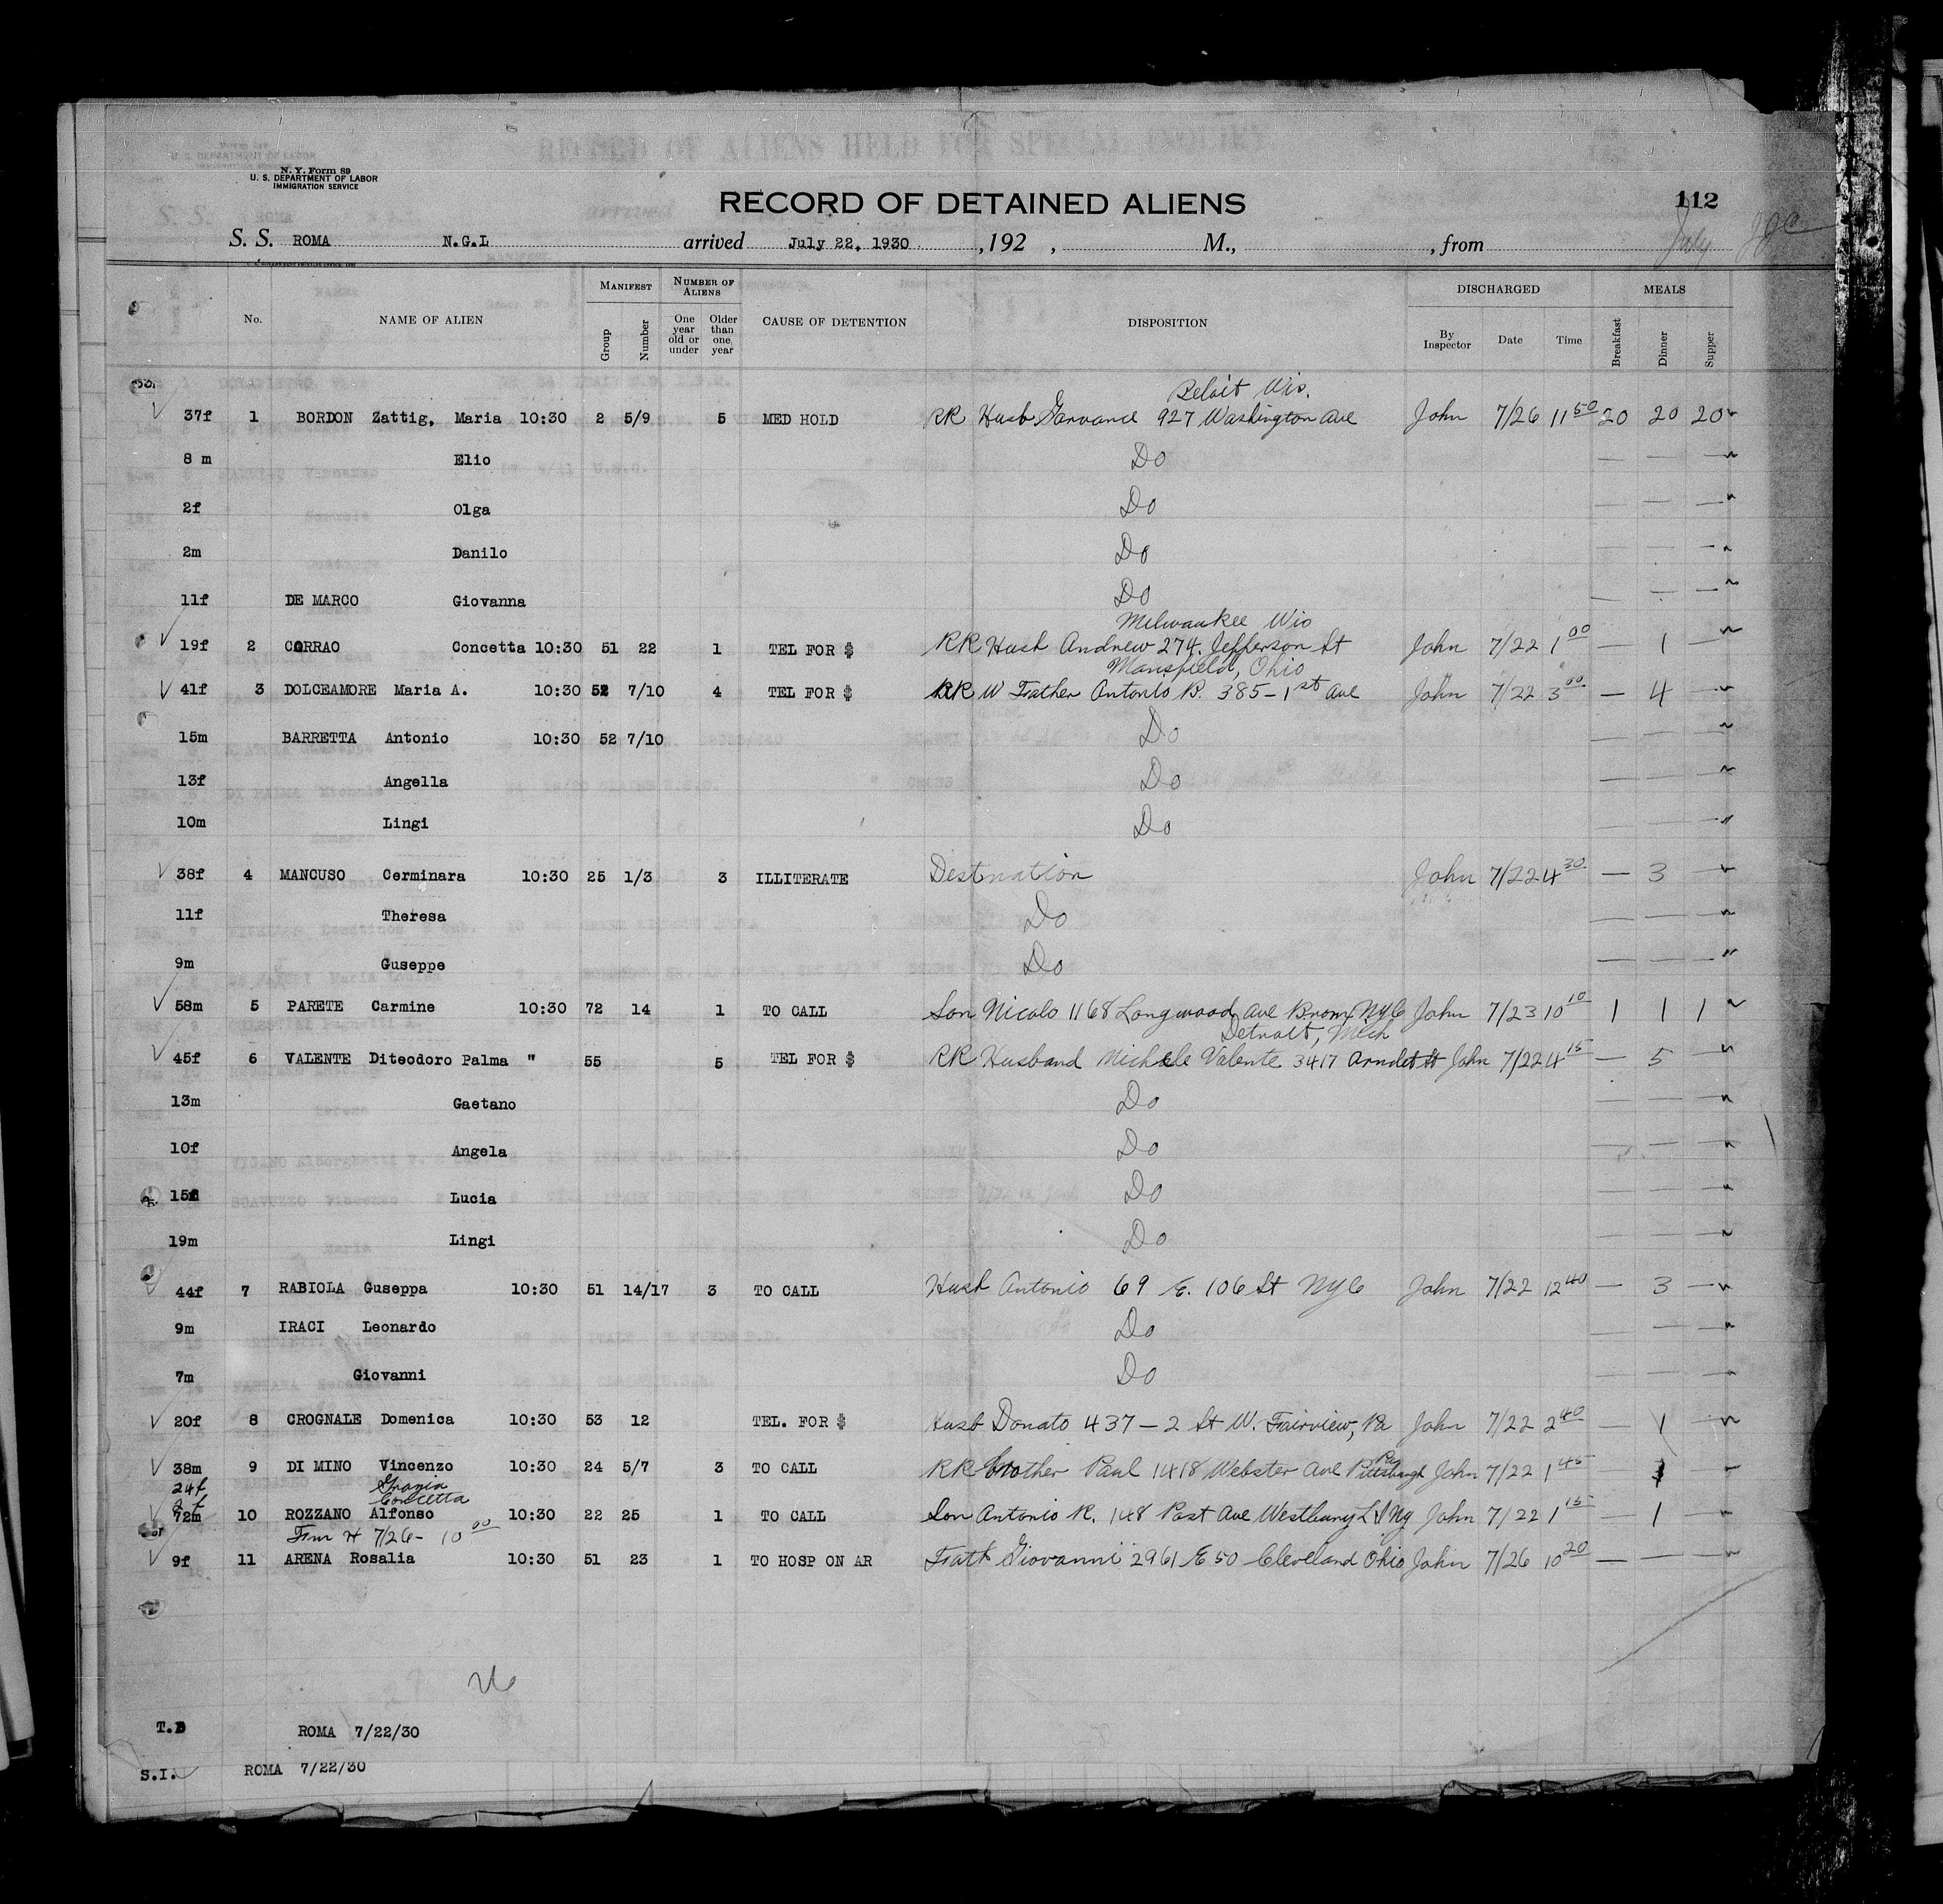 N. Y. Form 89
U. S. DEPARTMENT OF LABOR
IMMIGRATION SERVICE
RECORD OF ALIENS HELD FOR SPECIAL INQUIRY
RECORD OF DETAINED ALIENS 112
S. S. ROMA N.G.I arrived July 22, 1930 , 192 , M., , from July
No. NAME OF ALIEN MANIFEST Group Number NUMBER OF ALIENS One year old or under Older than one year CAUSE OF DETENTION DISPOSITION DISCHARGED By Inspector Date Time MEALS Breakfast Dinner Supper
Beloit Wis.
37f 1 BORDON Zattig, Maria 10:30 2 5/9 5 MED HOLD RR Husb 927 Washington Ave John 7/26 11 50 20 20 20
8 m Elio Do
2f Olga Do
2m Danilo Do
11f DE MARCO Giovanna Do
Milwaukee Wis
19f 2 CORRAO Concetta 10:30 51 22 1 TEL FOR $ RR Husb Andrew 274 Jefferson St John 7/22 1 00 — 1 —
Mansfield, Ohio
41f 3 DOLCEAMORE Maria A. 10:30 52 7/10 4 TEL FOR $ RR W Father Antonio B. 385 - 1st Ave John 7/22 3 00 — 4 —
15m BARRETTA Antonio 10:30 52 7/10 Do
13f Angella Do
10m Lingi Do
38f 4 MANCUSO Cerminara 10:30 25 1/3 3 ILLITERATE Destination John 7/22 4 30 — 3 —
11f Theresa Do
9m Guseppe Do
58m 5 PARETE Carmine 10:30 72 14 1 TO CALL Son Nicolo 1168 Longwood Ave Bronx NYC John 7/23 10 10 1 1 1
Detroit, Mich
45f 6 VALENTE Diteodoro Palma " 55 5 TEL FOR $ RR Husband Michele Valente 3417 Arndt St John 7/22 4 15 — 5 —
13m Gaetano Do
10f Angela Do
15f Lucia Do
19m Lingi Do
44f 7 RABIOLA Guseppa 10:30 51 14/17 3 TO CALL Husb Antonio 69 E. 106 St NYC John 7/22 12 40 — 3 —
9m IRACI Leonardo Do
7m Giovanni Do
20f 8 CROGNALE Domenica 10:30 53 12 TEL. FOR $ Husb Donato 437 — 2 St W. Fairview, Pa John 7/22 2 40 — 1 —
38m 9 DI MINO Vincenzo 10:30 24 5/7 3 TO CALL RR Brother Paul 1418 Webster Ave Pittsburgh Pa John 7/22 1 45 — 3 —
24f Grazia
Concetta
72m 10 ROZZANO Alfonso 10:30 22 25 1 TO CALL Son Antonio R. 148 Post Ave Westbury L I NY John 7/22 1 15 — 1 —
7/26 - 10 00
9f 11 ARENA Rosalia 10:30 51 23 1 TO HOSP ON AR Fath Giovanni 2961 E 50 Cleveland Ohio John 7/26 10 20 — — —
T.D ROMA 7/22/30
S.I. ROMA 7/22/30